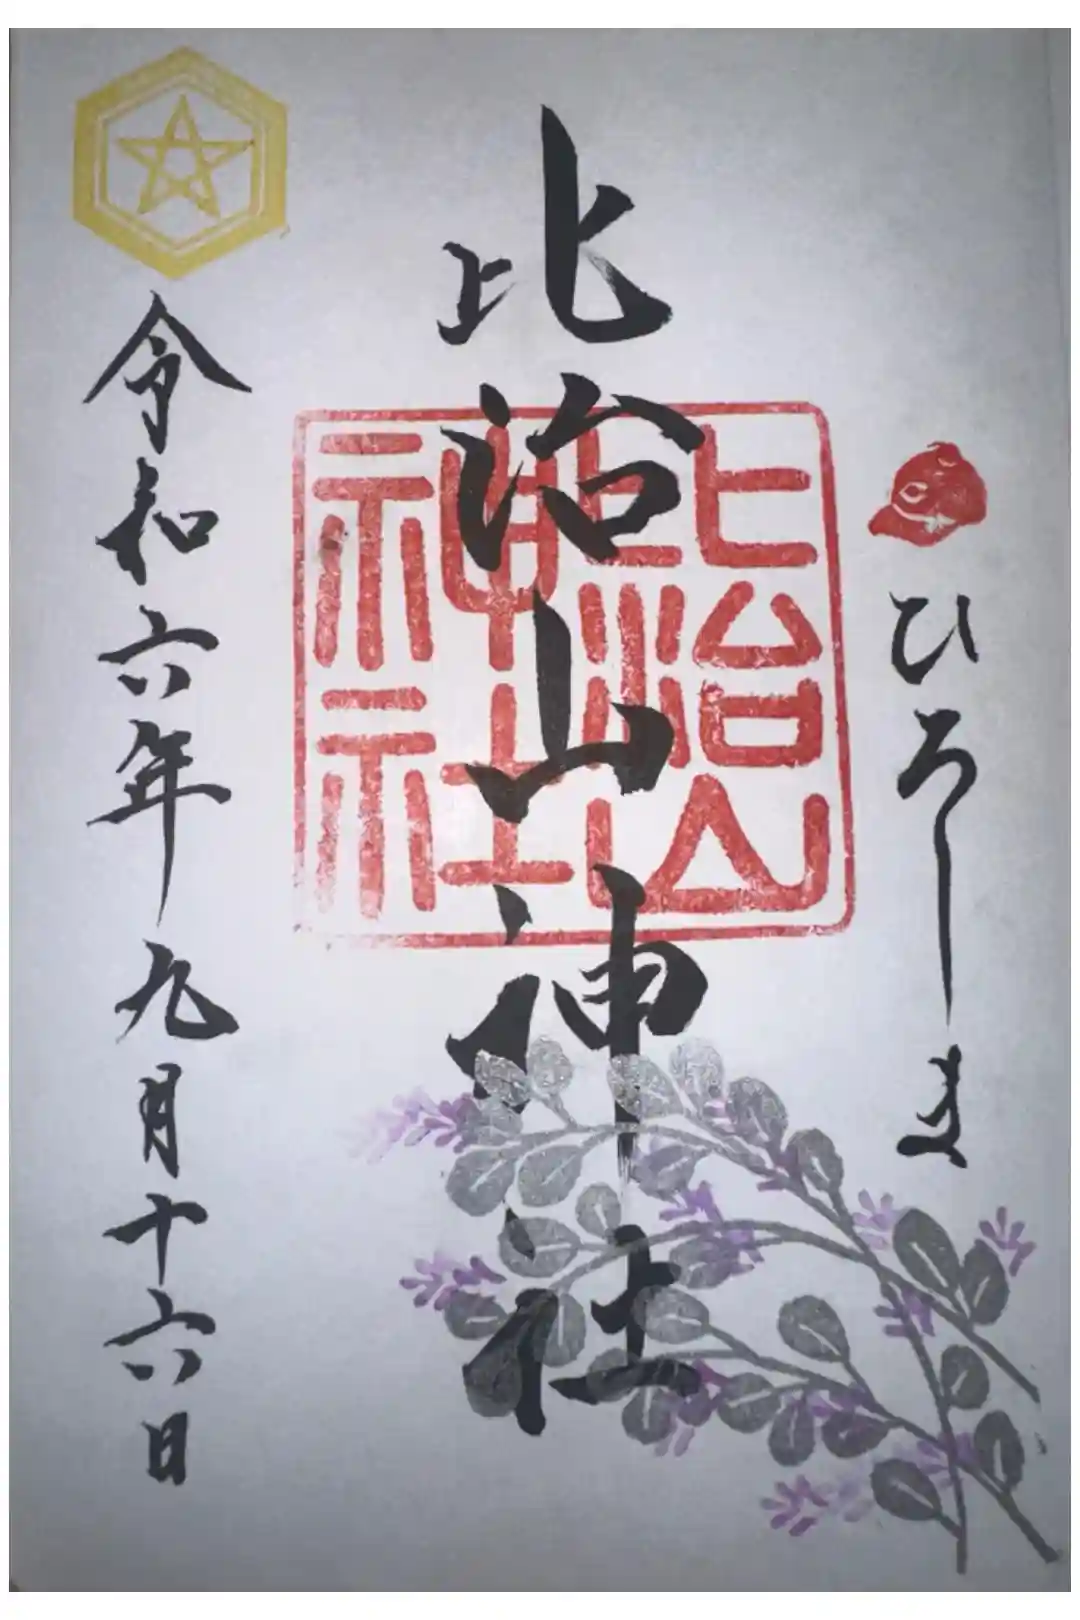 ひろしま
比治山神社
比治山神社
令和六年九月十六日